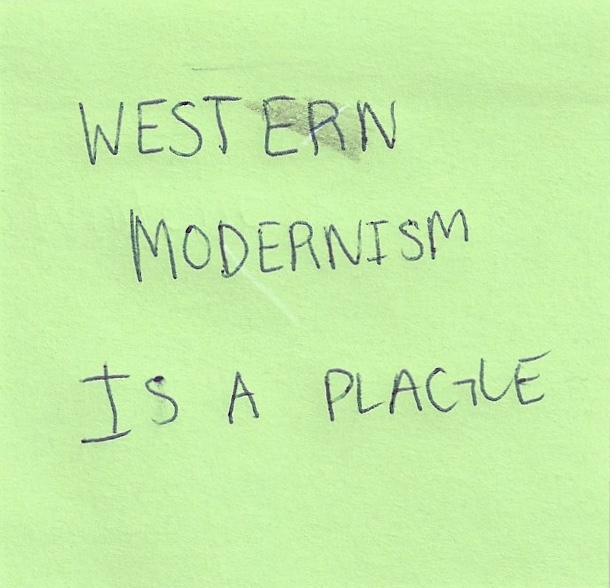 WESTERN
MODERNISM
IS A PLAGUE